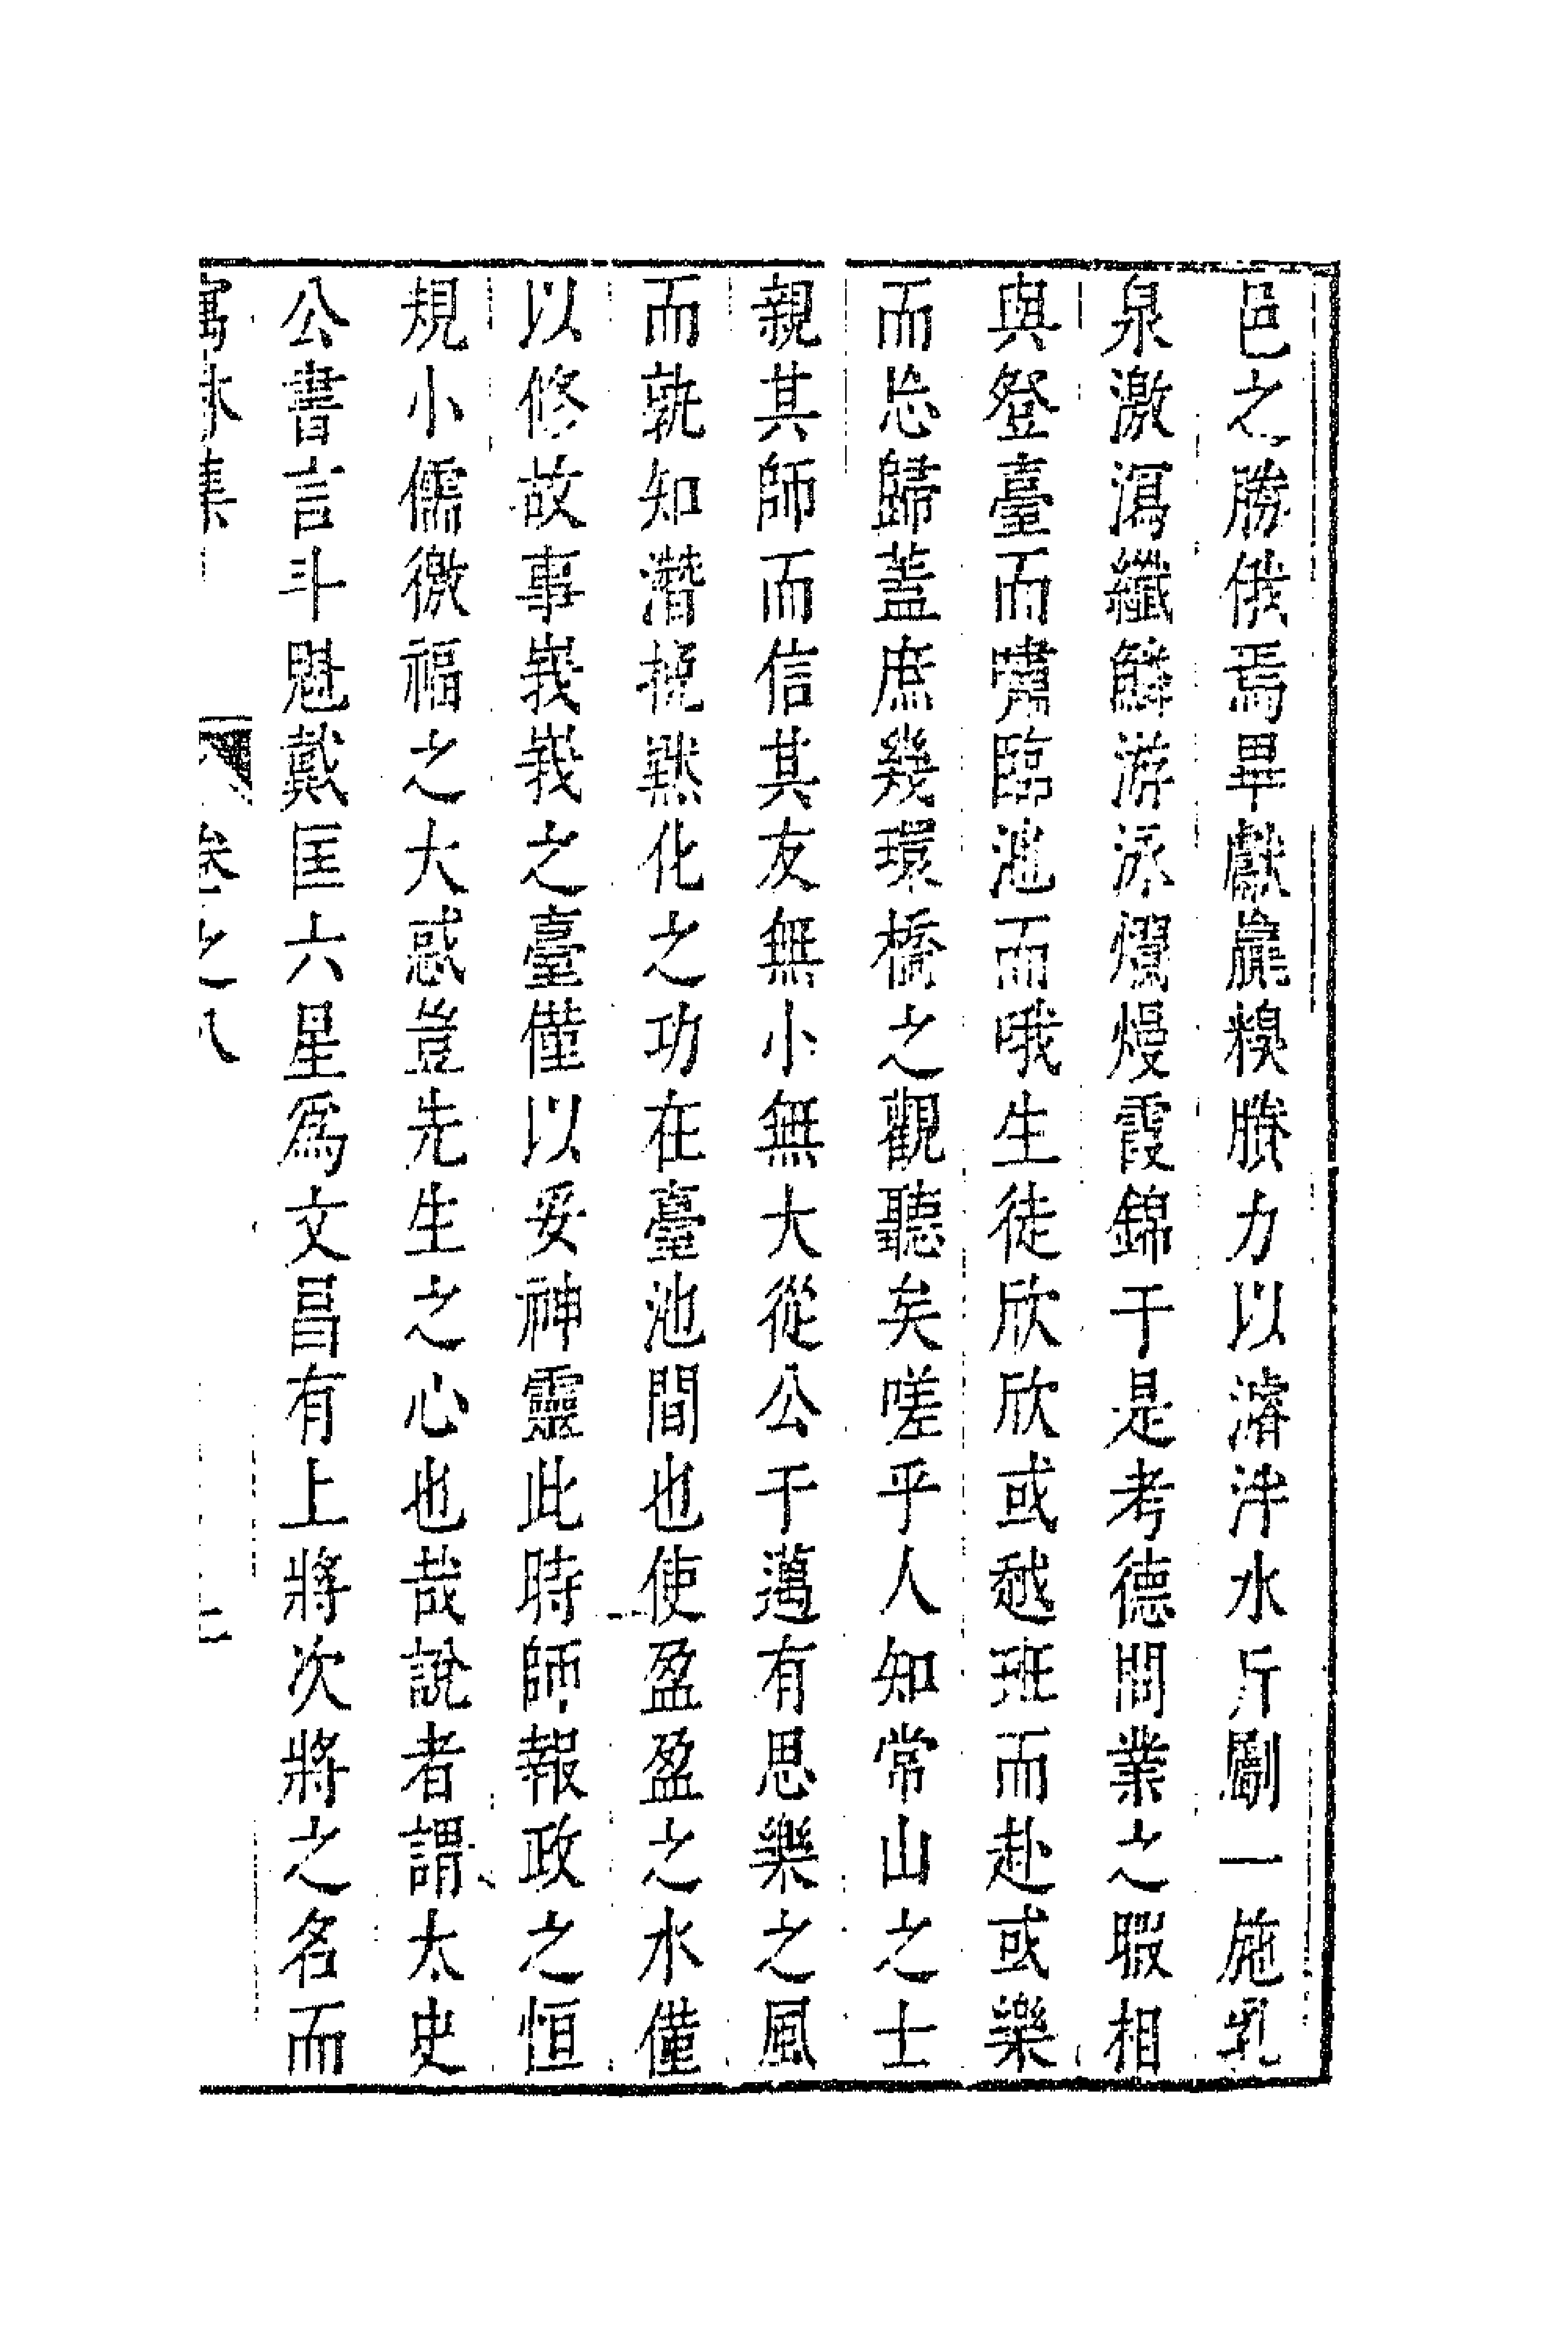 邑之勝俄焉畢獻羸糗賸力以濬泮水斤劚一施乳
泉激瀉纖鱗游泳爛熳霞錦于是考德問業之暇相
與登臺而嘯臨池而哦生徒欣欣或越班而赴或樂
而忘歸蓋庶幾環橋之觀聽矣嗟乎人知常山之士
親其師而信其友無小無大從公于邁有思樂之風
而孰知潛挽默化之功在臺池間也使盈盈之水僅
以修故事峩峩之臺僅以妥神靈此時師報政之恒
規小儒徼福之大惑豈先生之心也哉說者謂太史
公書言斗魁戴匡六星為文昌有上將次將之名而
寓林集 卷之八